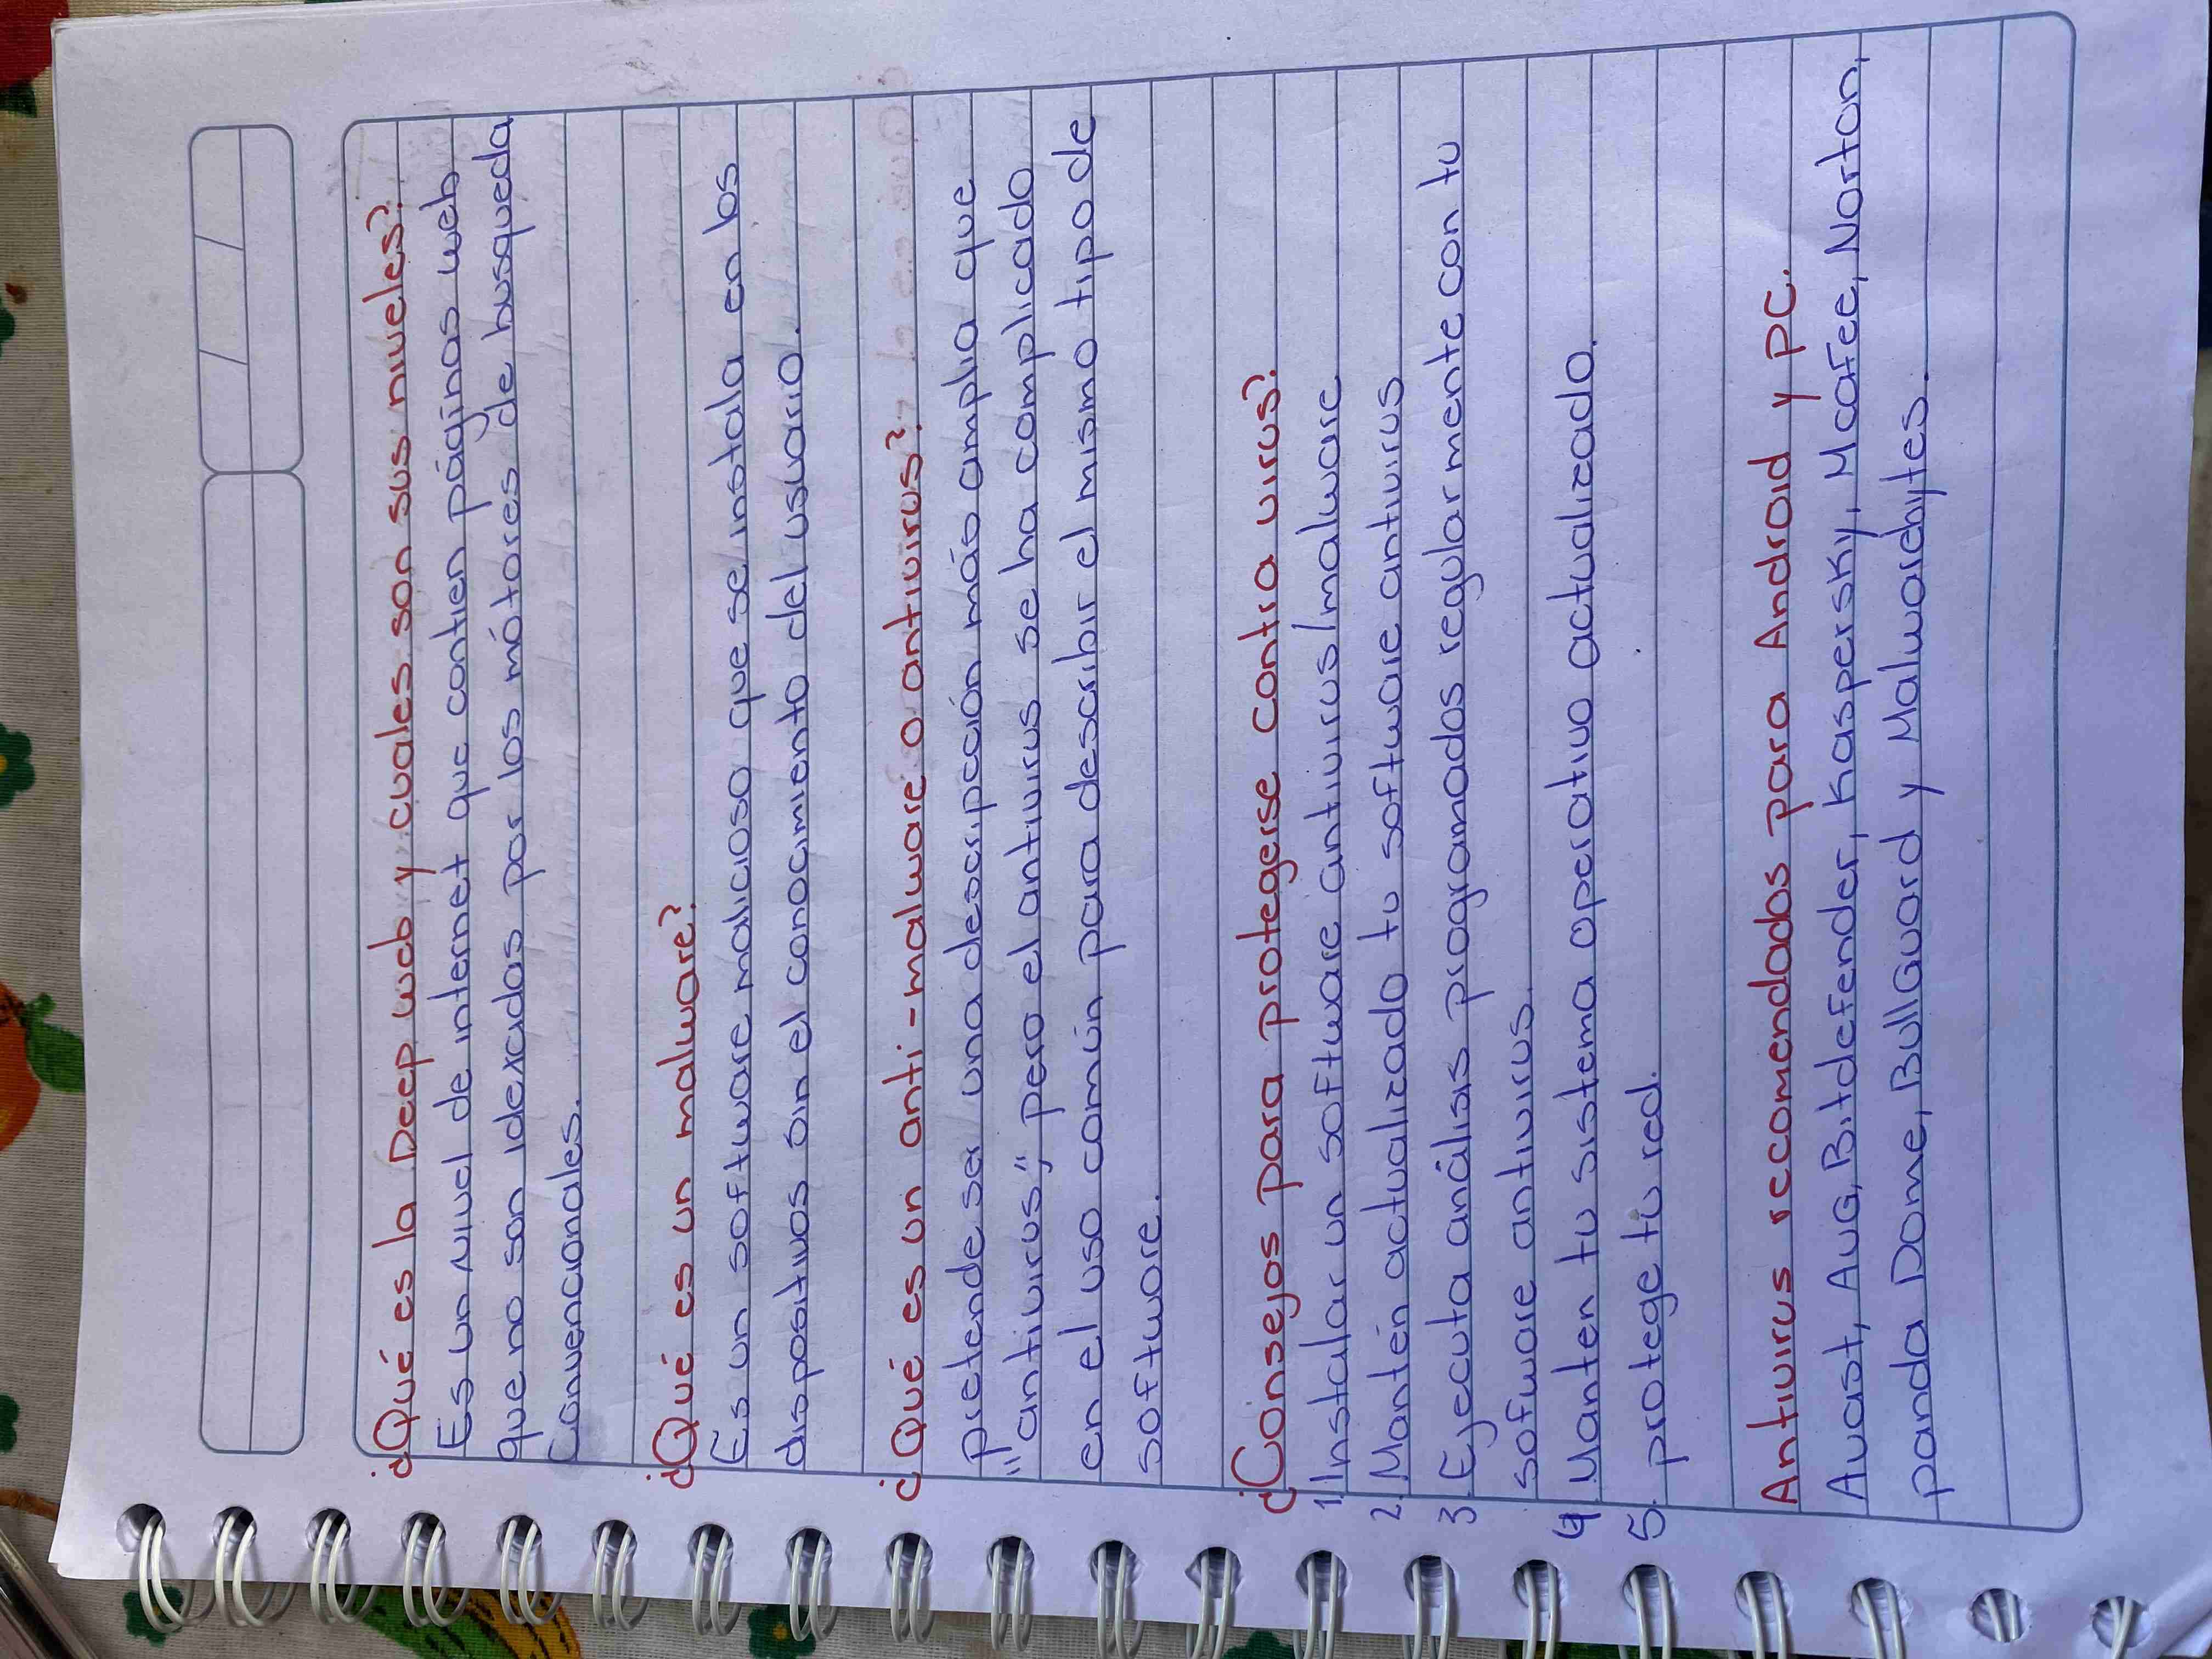 ¿Qué es la Deep web y cuales son sus niveles?
Es un nivel de internet que contien páginas web
que no son idexadas por los mótores de busqueda
Convencionales.
¿Qué es un malware?
Es un software malicioso que se instala en los
dispositivos sin el conocimiento del usuario.
¿Qué es un anti-malware o antivirus?
pretende ser una descripción más amplia que
"antivirus", pero el antivirus se ha complicado
en el uso común para describir el mismo tipo de
software.
¿Consejos para protegerse contra virus?
1. Instalar un software antivirus/malware
2. Mantén actualizado tu software antivirus
3. Ejecuta análisis programados regularmente con tu
sofware antivirus.
4. Manten tu sistema operativo actualizado.
5. protege tu red.
Antivirus recomendados para Android y PC.
Avast, Avg, Bitdefender, Kaspersky, Mcafee, Norton,
panda Dome, Bullguard y Malwarebytes.